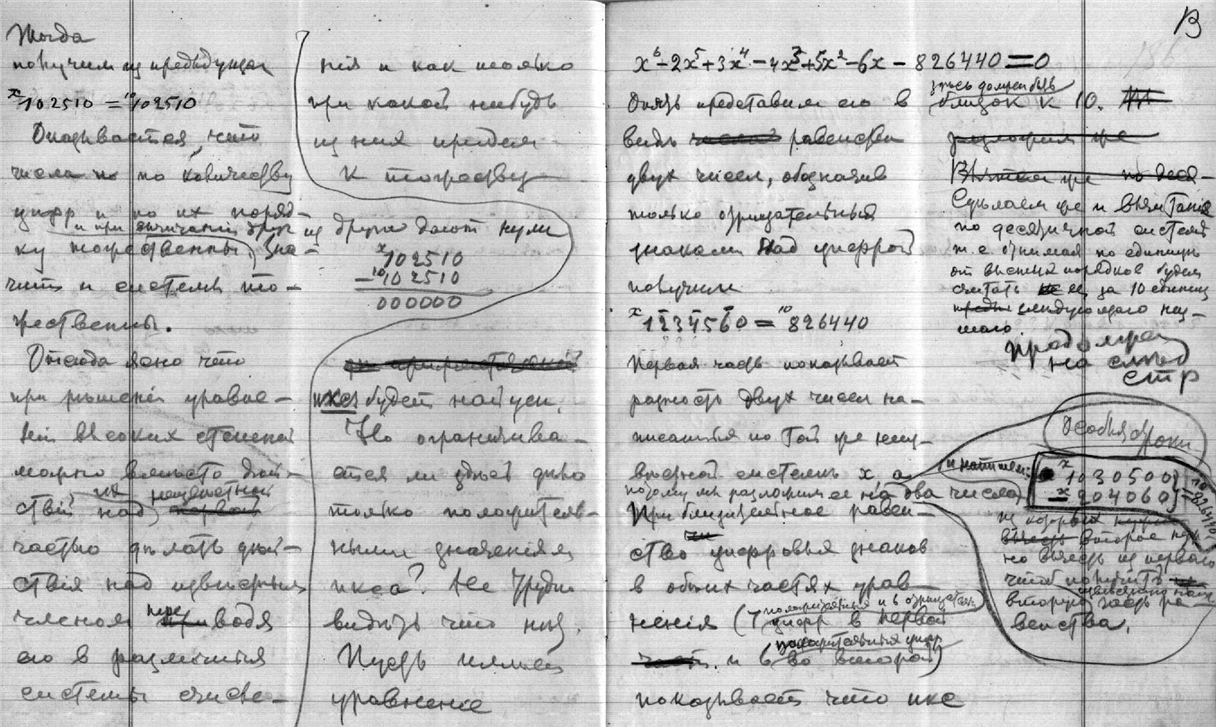 Тогда
получим из предыдущая
x102510 = 10102510
Оказывается, что
числа по количеству
цифр и по их поряд-
и при вычитании друг из друга дают нули
ку тожественны, зна-
чит и системы то-
жественны.
Отсюда ясно что
при решеніи уравне-
ній высоких степеней
можно вместо дей-
ствій над их неизвестной
частью делать дей-
ствія над известным
членом переводя
его в различныя
системы счисле-
нія и как только
при какой нибудь
из них придем
к тожеству
x102510
-10102510
000000
икс будет найден.
Но ограничива-
ется ли здесь дело
только положитель-
ными значеніями
икса? Не трудно
видеть что нет.
Пусть имеем
уравнение
В
x⁶-2x⁵+3x⁴-4x³+5x²-6x-826440=0
Опять представим его в
виде равенства
двух чисел, обозначив
только отрицательныя
знаками над цифрой
получим
x1234560 = 10826440
Первая часть показывает
разность двух чисел на-
писанных по той же неиз-
вестной системе x а
потому мы разложим ее на два числа
Приблизительное равен-
ство цифровых знаков
в обоих частях урав-
ненія (7 положительных и отрицательн.
цифр в первой
и 6 положительных цифр во второй)
показывает что икс
здесь должен быть
близок к 10.
Сделаем же и вычитание
по десятичной системе
т. е. отнимая по единице
от высших порядков будем
считать ее за 10 единиц
следующаго низ-
шаго.
Продолжен
на след
стр
Особыя строки
и напишем:
x1030500
-x204060
=10826440
из которых
второе нуж-
но вычесть из перваго
чтоб получить
вторую часть ра-
венства.